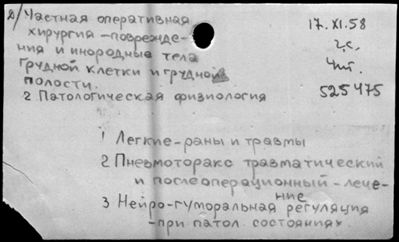 2/ Частная оперативная
хирургия – поврежде-
ния и инородные тела
грудной клетки и грудной
полости.
2 Патологическая физиология
17.XI.58
г.с.
чит.
525475
1 Легкие – раны и травмы
2 Пневмоторакс травматический
и послеоперационный – лече-
ние
3 Нейро-гуморальная регуляция
– при патол. состояниях.